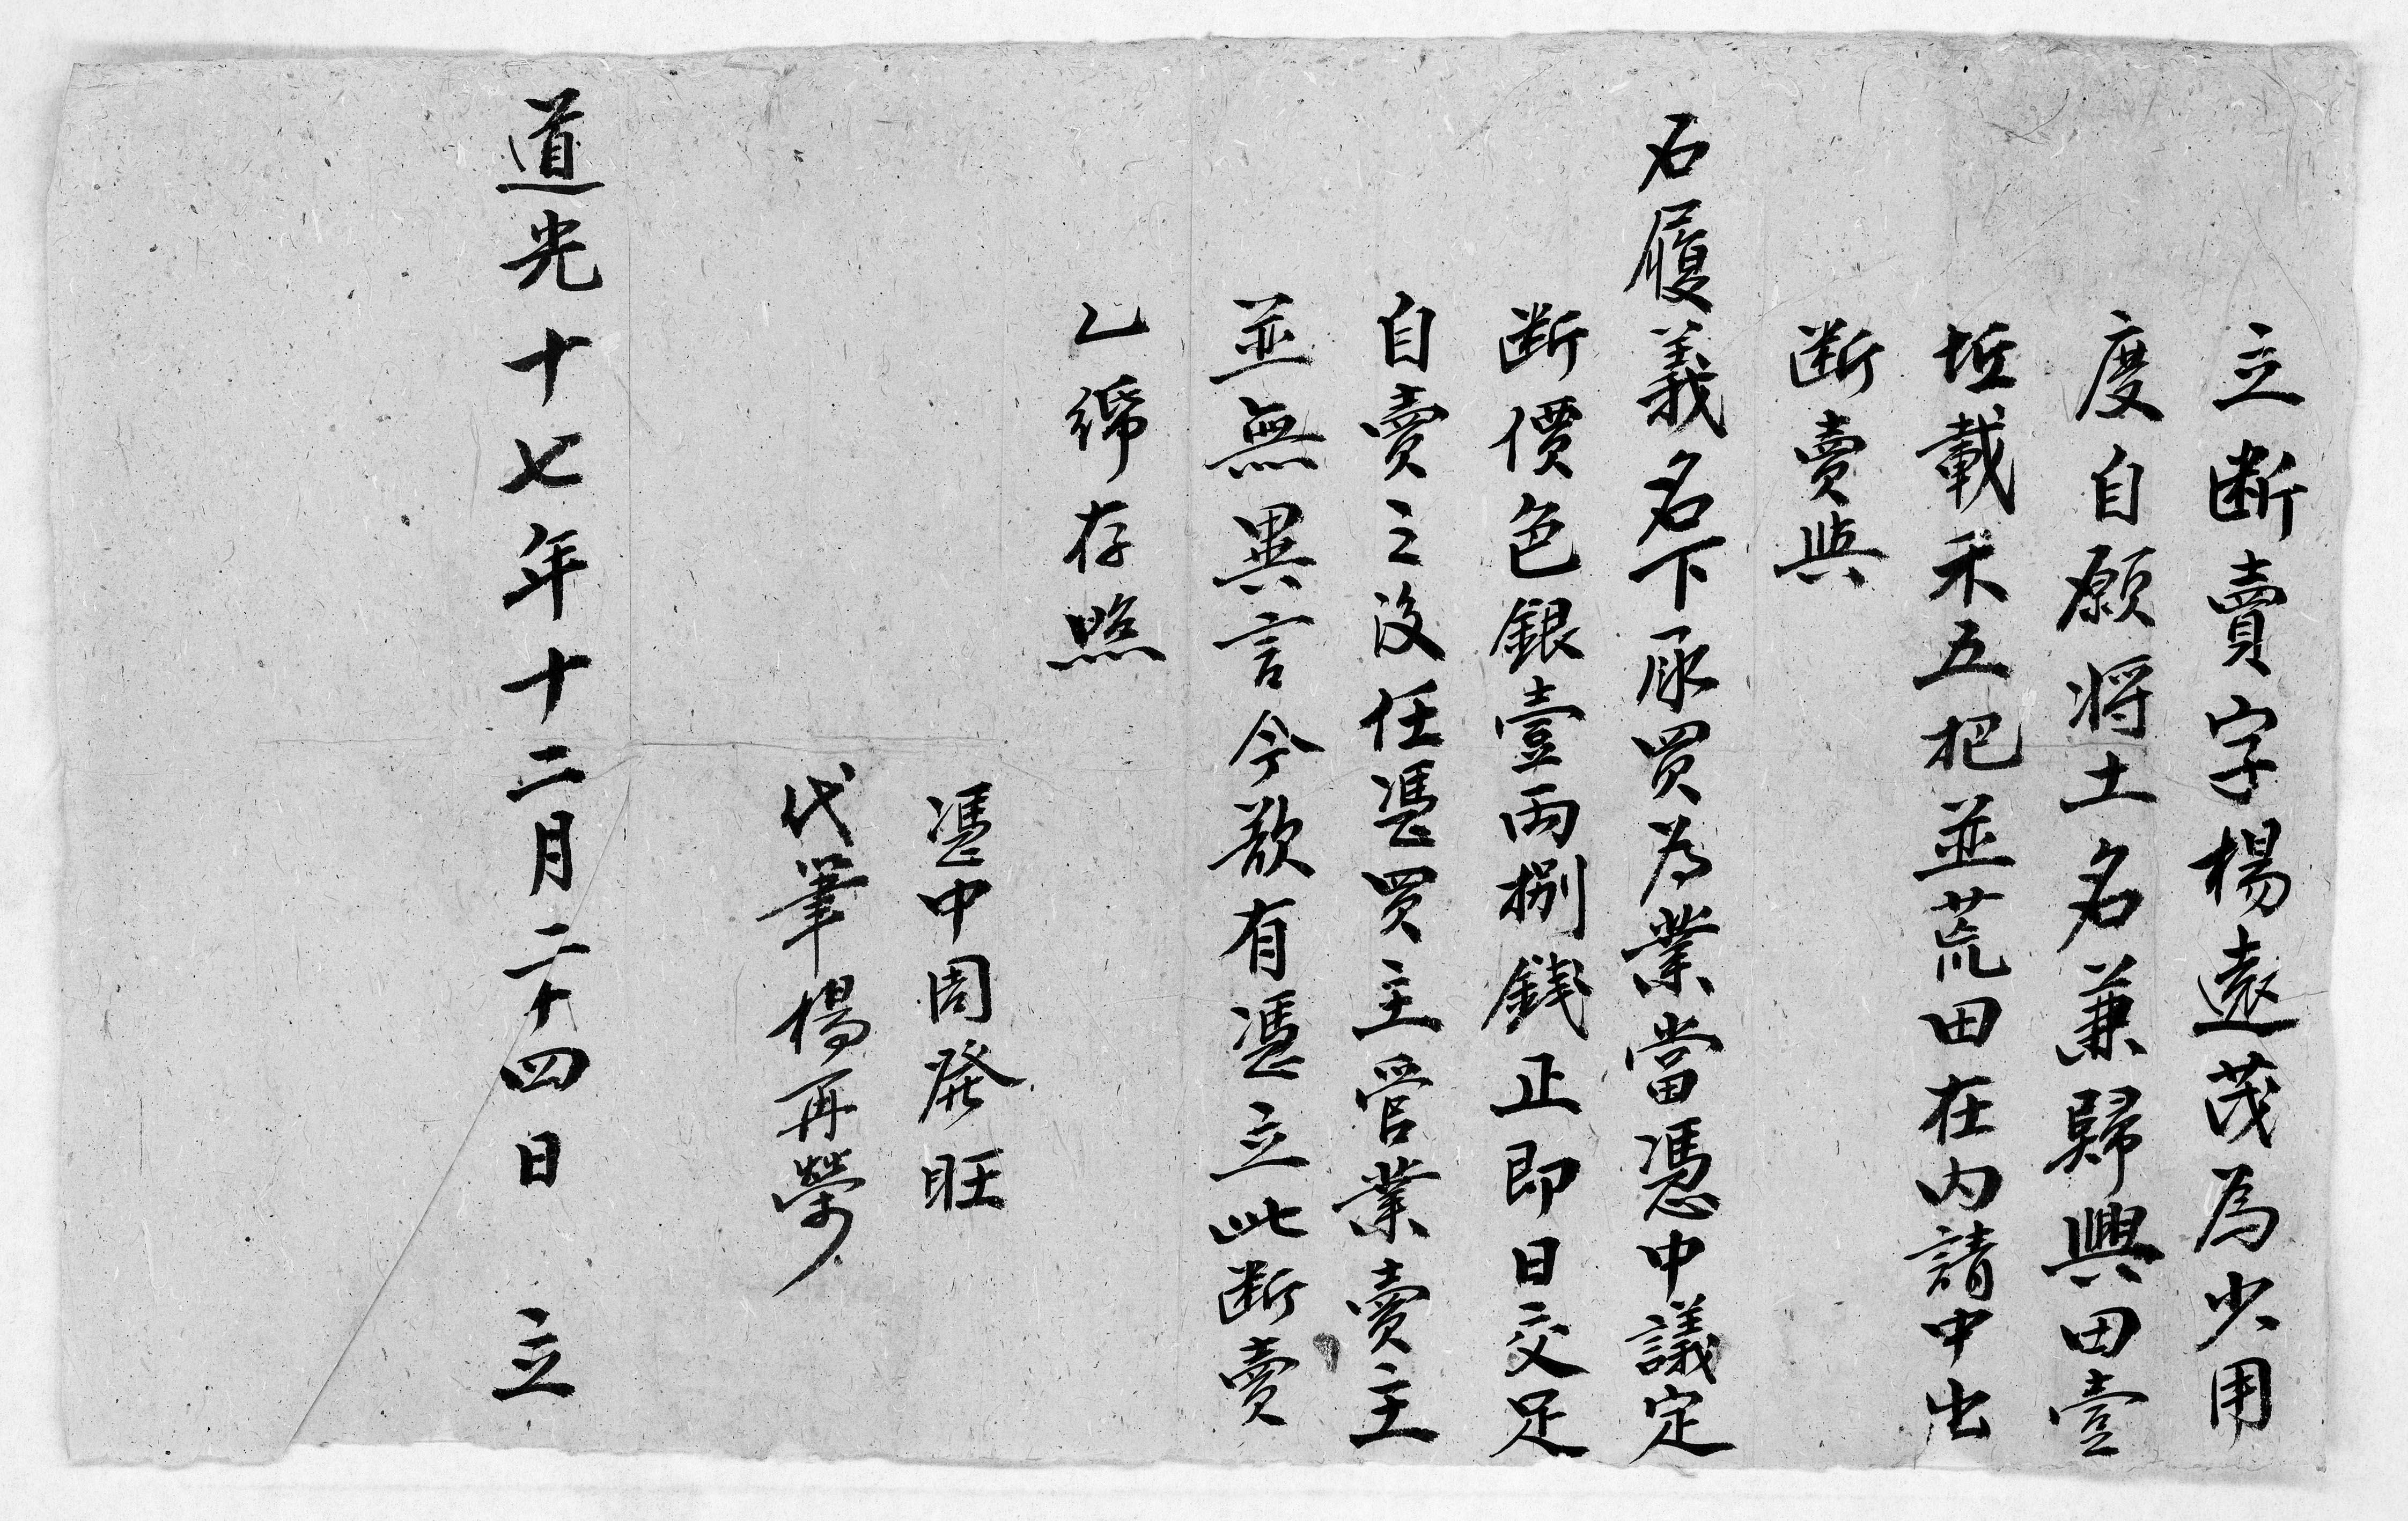 立断賣字楊遠茂為少用
度自願將土名兼歸興田壹
坵載禾五把並荒田在内請中出
断賣與
石履義名下承買为業當憑中議定
断價色銀壹両捌錢正即日交足
自賣之後任憑買主管業賣主
並無異言今欲有憑立此断賣
乙紙存照
憑中周發旺
代筆楊再榮
道光十七年十二月二十四日 立